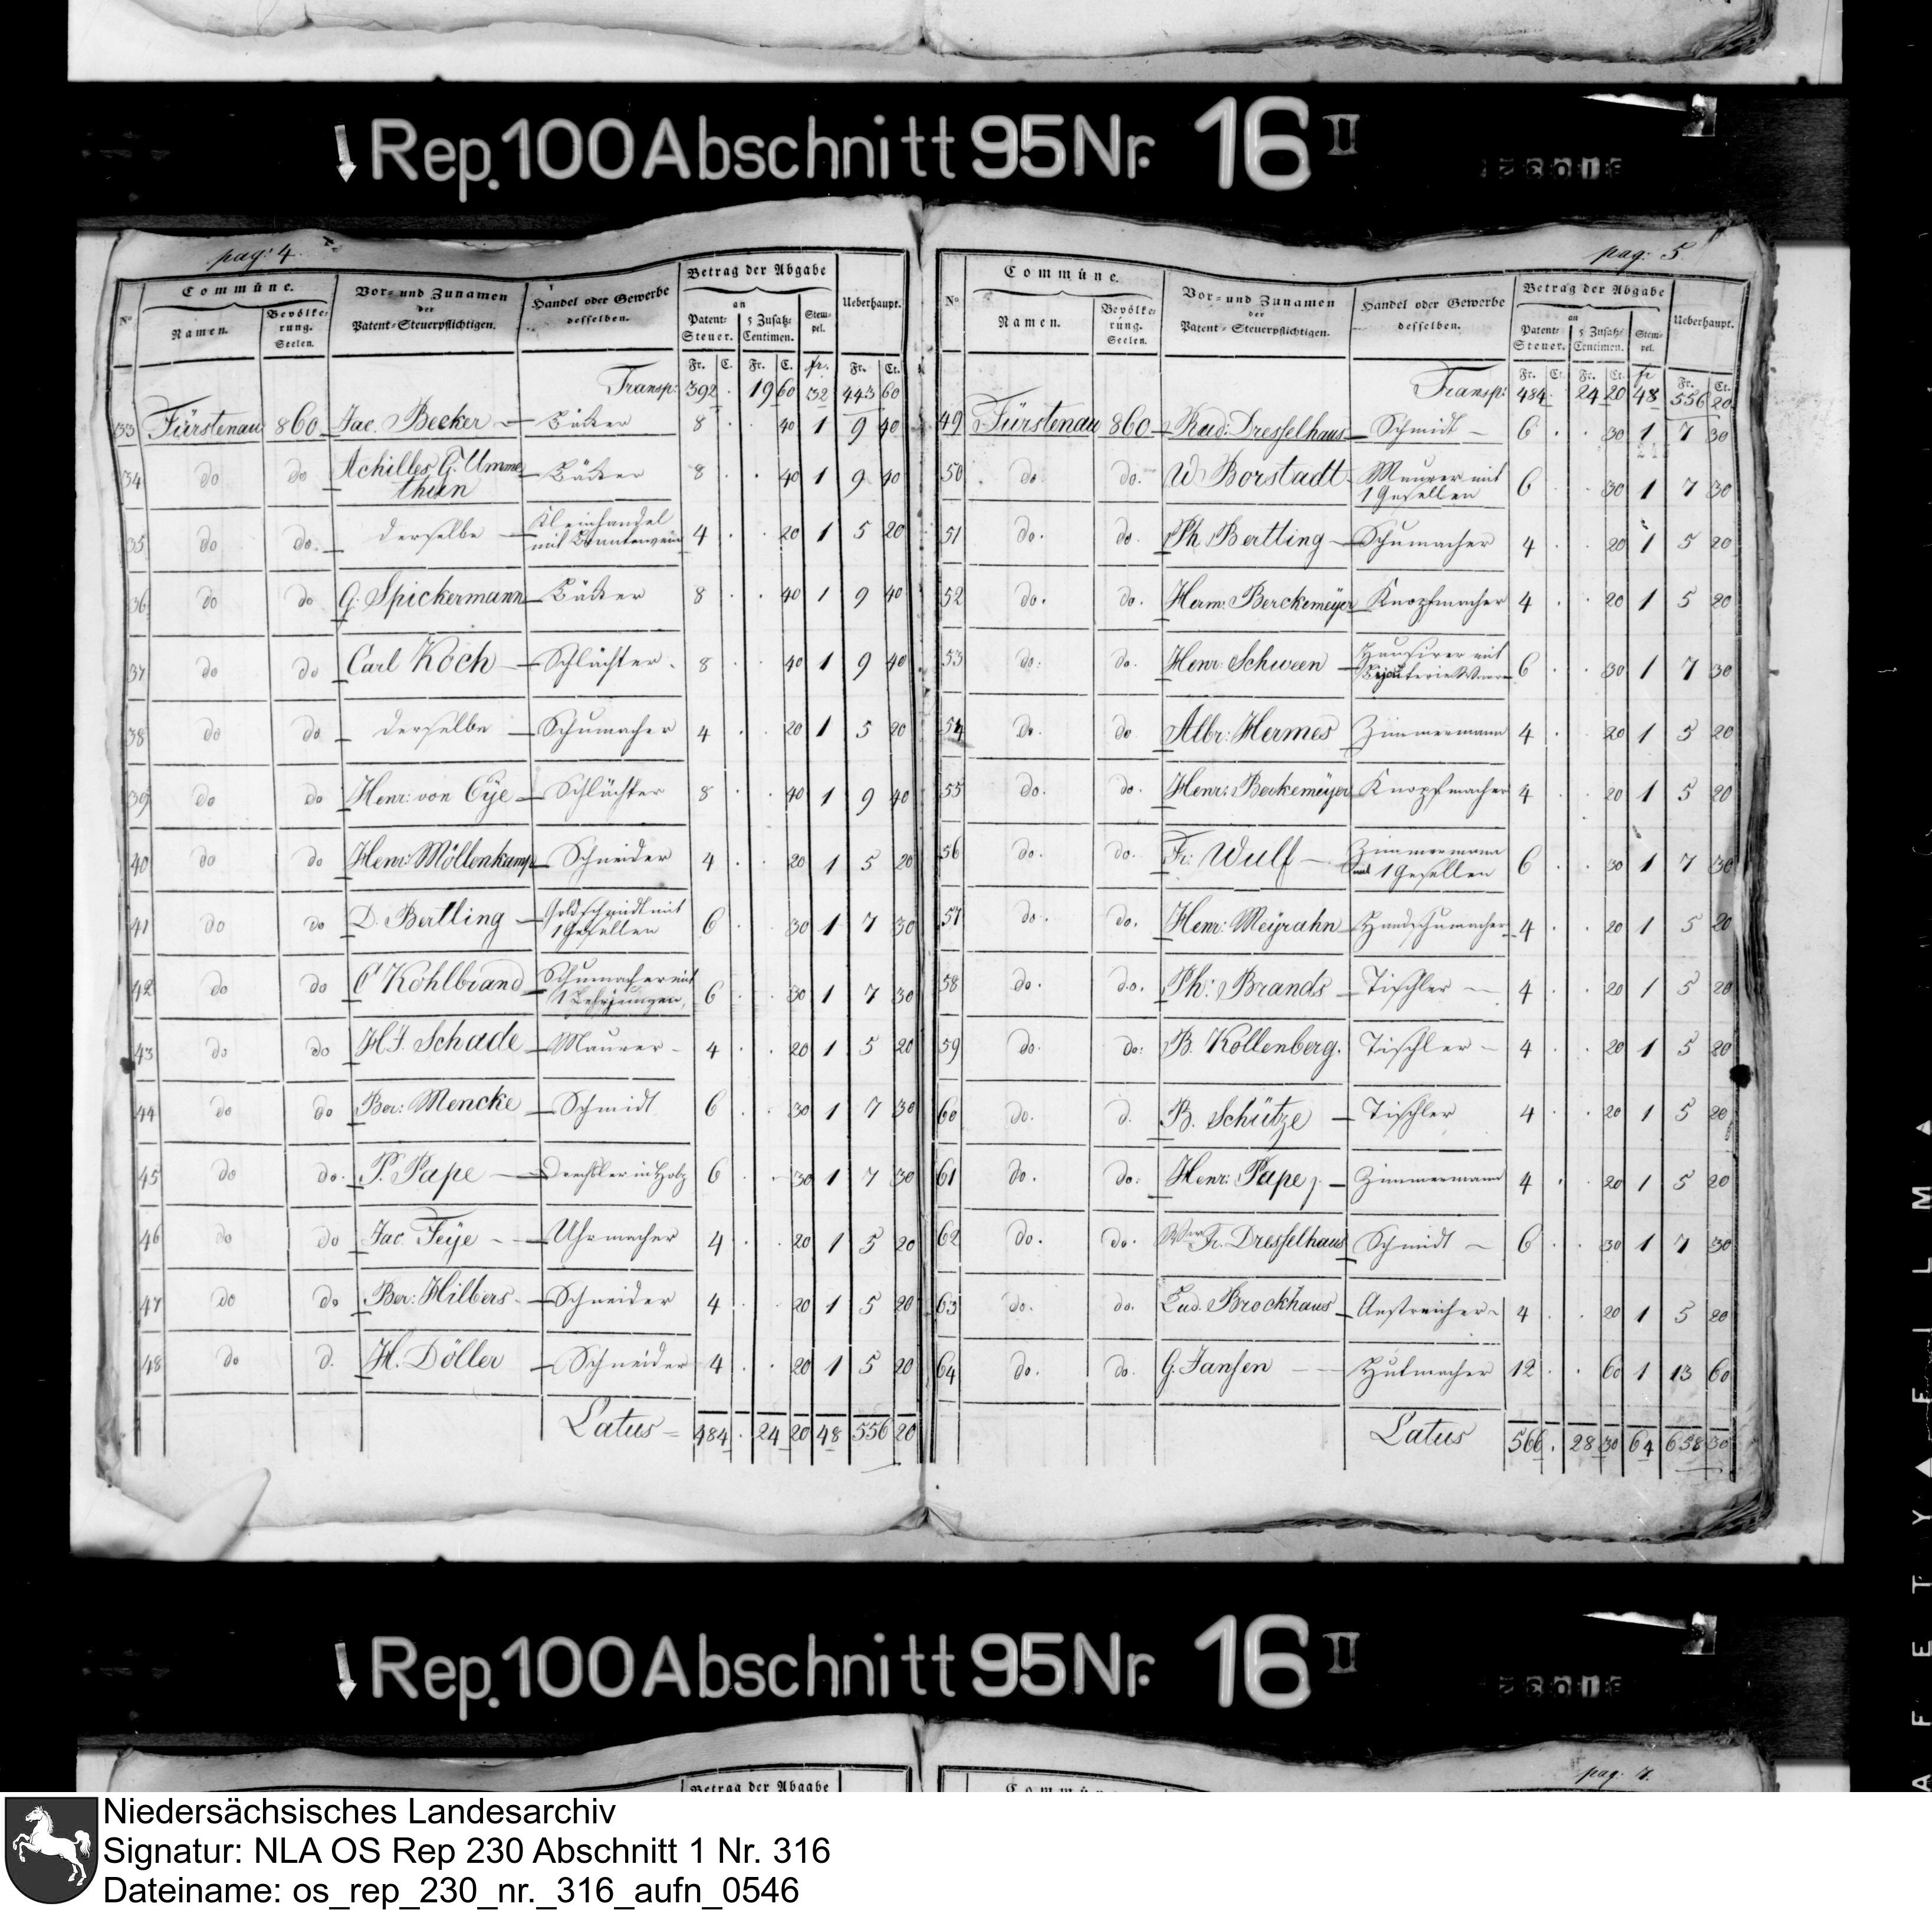 Rep. 100 Abschnitt 95 Nr. 16 II
pag: 4.
Nº Commüne. Vor- und Zunamen der Patent-Steuerpflichtigen. Handel oder Gewerbe desselben. Betrag der Abgabe Ueberhaupt.
Namen. Bevölkerung. Seelen. an Patent-Steuer. 5 Zusatz-Centimen. Stempel.
Fr. C. Fr. C. fr. Fr. Ct.
Transp: 392 . 19 60 32 443 60
33 Fürstenau 860 Jac. Becker Bäcker 8 . . 40 1 9 40
34 do do Achilles G. Umme
thun Bäcker 8 . . 40 1 9 40
35 do do. derselbe Kleinhandel
mit Brantewein 4 . . 20 1 5 20
36 do do G. Spickermann Bäcker 8 . . 40 1 9 40
37 do do Carl Koch Schlächter 8 . . 40 1 9 40
38 do do derselbe Schumacher 4 . . 20 1 5 20
39 do do Henr: von Eÿe Schlächter 8 . . 40 1 9 40
40 do do Henr: Möllenkamp Schneider 4 . . 20 1 5 20
41 do do D. Bertling Goldschmidt mit
1 Gesellen 6 . . 30 1 7 30
42 do do C Kohlbrand Schumacher mit
1 Lehrjungen, 6 . . 30 1 7 30
43 do do H.F. Schade Maurer 4 . . 20 1 5 20
44 do do Ber: Mencke Schmidt 6 . . 30 1 7 30
45 do do. P. Pape Drechsler in Holz 6 . . 30 1 7 30
46 do do Jac. Feÿe Uhrmacher 4 . . 20 1 5 20
47 do do Ber: Hilbers Schneider 4 . . 20 1 5 20
48 do d. H. Döller Schneider 4 . . 20 1 5 20
Latus 484 . 24 20 48 556 20
pag: 5
Nº Commüne. Vor- und Zunamen der Patent-Steuerpflichtigen. Handel oder Gewerbe desselben. Betrag der Abgabe Ueberhaupt.
Namen. Bevölkerung. Seelen. an Patent-Steuer. 5 Zusatz-Centimen. Stempel.
Fr. Ct. Fr. Ct. fr Fr. Ct.
Transp: 484 . 24 20 48 556 20
49 Fürstenau 860 Rud: Dresselhaus Schmidt 6 . . 30 1 7 30
50 do. do. W Borstadt Maurer mit
1 Gesellen 6 . . 30 1 7 30
51 do. do. Ph. Bertling Schumacher 4 . . 20 1 5 20
52 do. do. Herm: Berckemeÿer Knopfmacher 4 . . 20 1 5 20
53 do. do. Henr: Schween Hausirer mit
Bijouterie Waaren 6 . . 30 1 7 30
54 do. do Albr: Hermes Zimmermann 4 . . 20 1 5 20
55 do. do. Henr: Berkemeÿer Knopfmacher 4 . . 20 1 5 20
56 do. do. Fr: Wulf Zimmermann
mit 1 Gesellen 6 . . 30 1 7 30
57 do. do. Henr: Meÿrahn Handschumacher 4 . . 20 1 5 20
58 do. do. Ph: Brands Tischler 4 . . 20 1 5 20
59 do. do: B. Kollenberg. Tischler 4 . . 20 1 5 20
60 do. d. B. Schütze Tischler 4 . . 20 1 5 20
61 do. do: Henr: Pape j. Zimmermann 4 . . 20 1 5 20
62 do. do. Fr. Dresselhaus Schmidt 6 . . 30 1 7 30
63 do. do. Lud. Brockhaus Anstreicher 4 . . 20 1 5 20
64 do. do. G. Jansen Hutmacher 12 . . 60 1 13 60
Latus 566 . 28 30 64 658 30
Rep. 100 Abschnitt 95 Nr. 16 II
Betrag der Abgabe
pag. 7.
Niedersächsisches Landesarchiv
Signatur: NLA OS Rep 230 Abschnitt 1 Nr. 316
Dateiname: os_rep_230_nr._316_aufn_0546